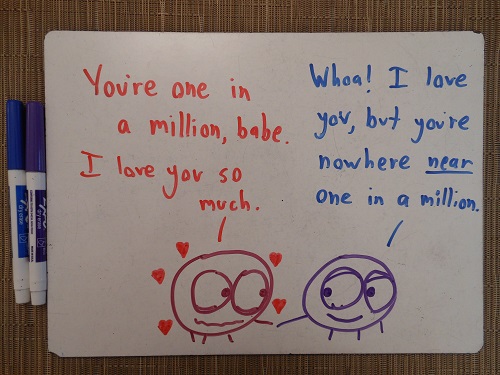 You're one in
a million, babe.
I love you so
much.
Whoa! I love
you, but you're
nowhere near
one in a million.